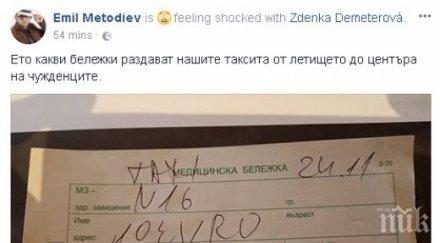 Emil Metodiev is feeling shocked with Zdenka Demeterová.
54 mins
Ето какви бележки раздават нашите таксита от летището до центъра
на чужденците.
TAXI
МЕДИЦИНСКА БЕЛЕЖКА 24.11
МЗ -
здр. заведение N16
Име
възраст
адрес 10 EVRO